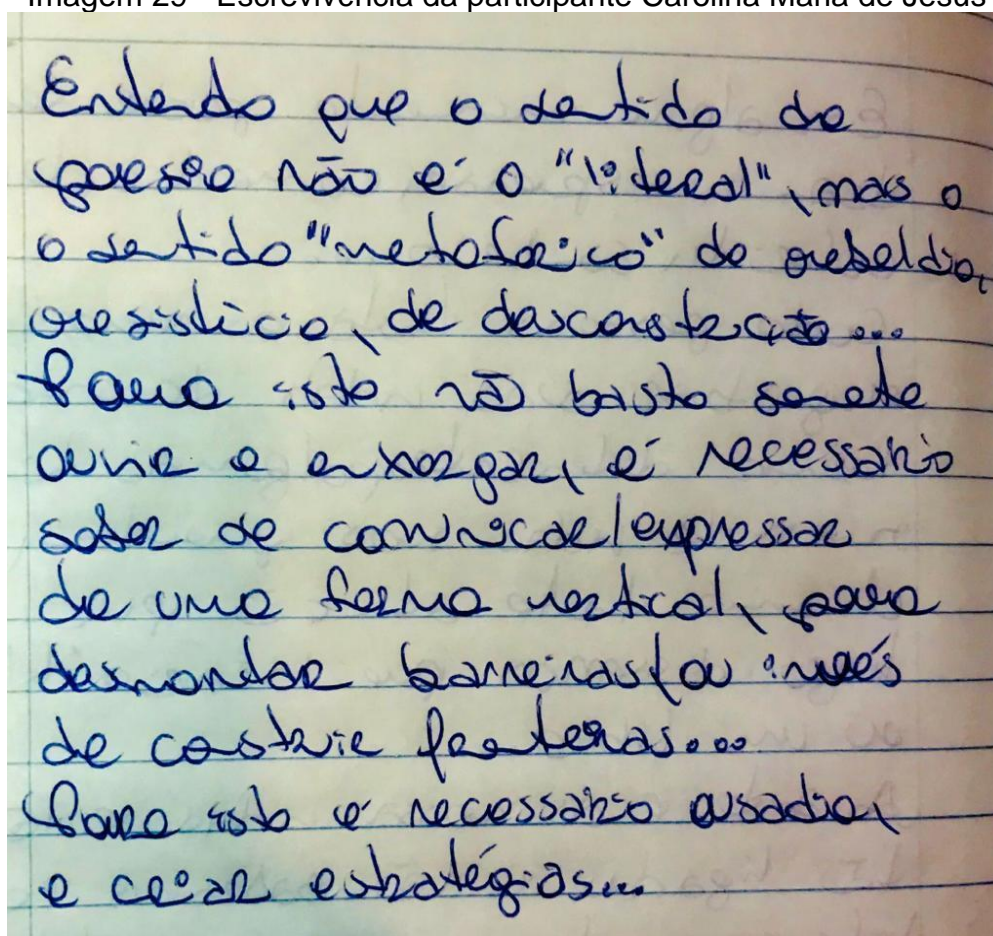 Imagem 29 - Escrevivência da participante Carolina Maria de Jesus
Entendo que o sentido de
poesia não é o "literal", mas o
o sentido "metafórico" de rebeldia,
resistêcia, de desconstrução...
Para isto nã basta somete
ouvir e enxergar, é necessario
saber se comunicar/expressar
de uma forma vertical, para
desmontar barreiras (ou invés
de costruir fronteras...
Para isto é necessario ousadia,
e criar estratégias...